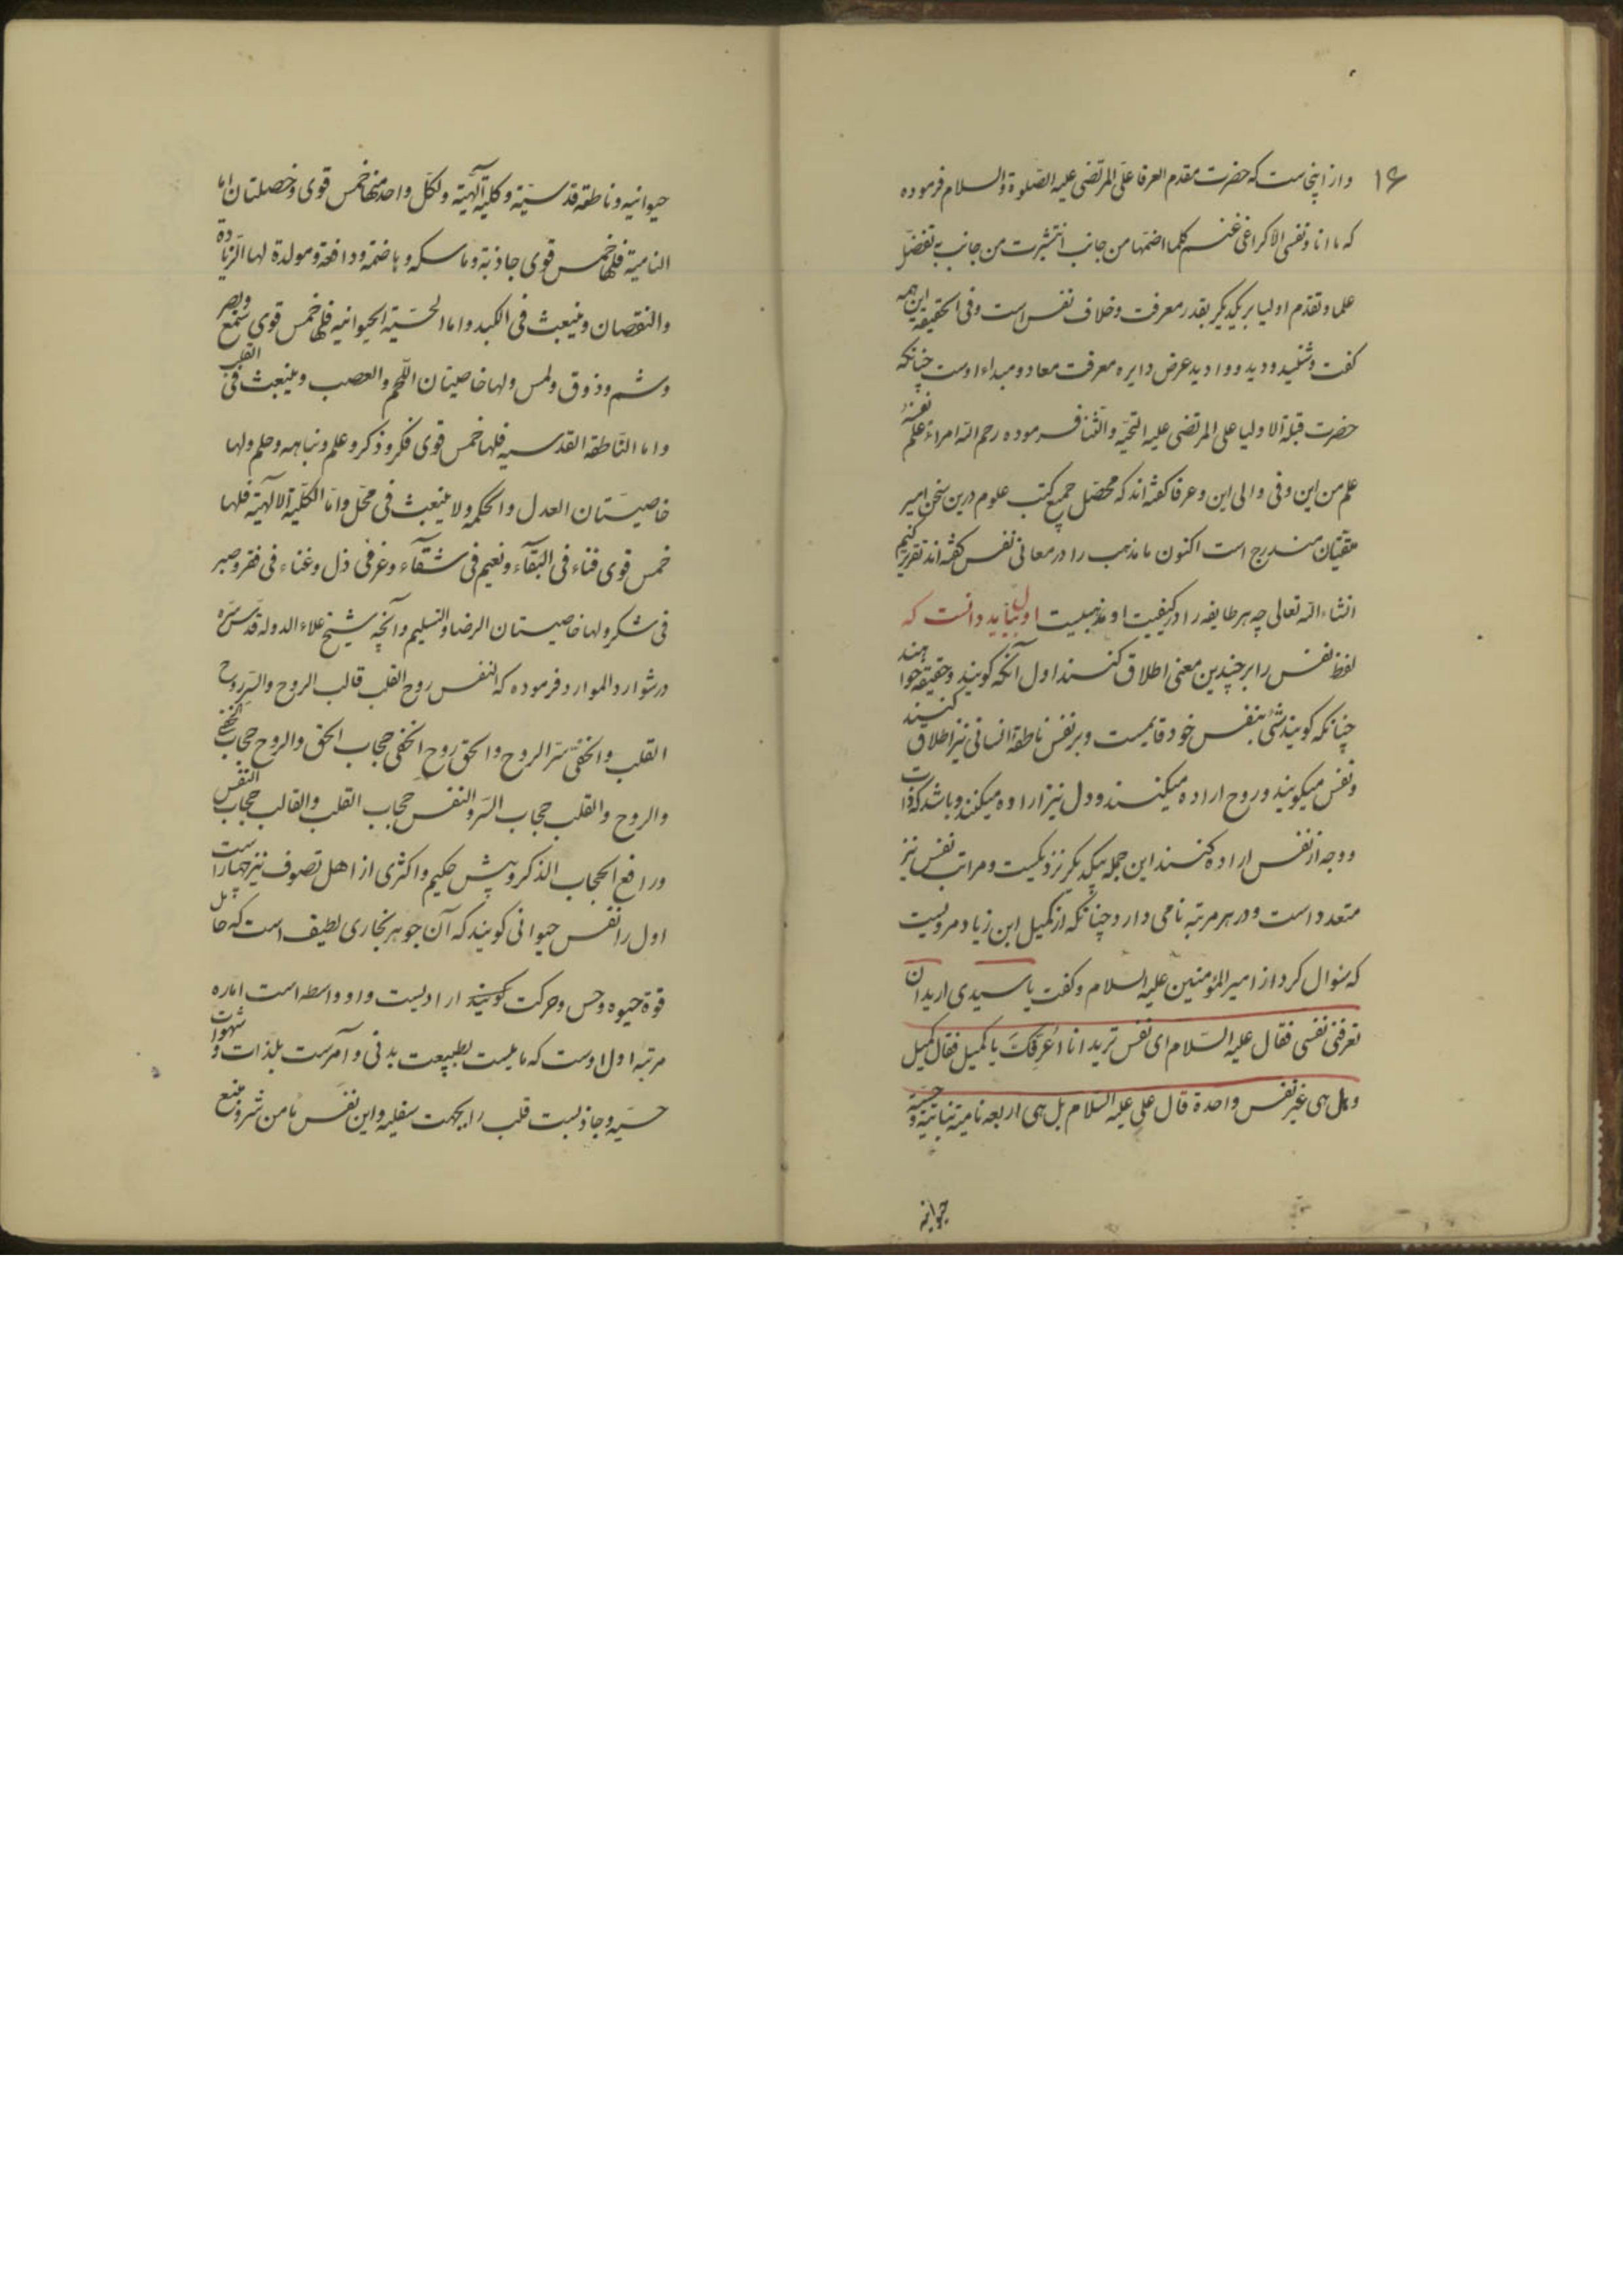 ۱۶
و از اینجاست که حضرت مقدم العرفا علی المرتضی علیه الصّلوة والسلام فرموده
که ما انا و نفسی الا کراعی غنم کلما اضمها من جانب انتشرت من جانب تفضّل
علما و تقدم اولیا بر یکدیگر بقدر معرفت و خلاف نفس است و فی الحقیقة این همه
گفت و شنید و دید و وادید عرض دایره معرفت معاد و مبداء اوست چنانکه
حضرت قبلة الاولیا علی المرتضی علیه التحیّه والثنا فرموده رحم الله امراء علم نفسه
علم من این و فی والی این و عرفا گفته اند که محصّل جمیع کتب علوم درین سخن امیر
متقیان مندرج است اکنون ما مذهب را در معانی نفس گفته اند تقریر کنیم
انشاء الله تعالی چه هر طایفه را در کیفیت او مذهبیست اول بباید دانست که
لفظ نفس را بر چندین معنی اطلاق کنند اول آنکه گویند و حقیقة خواهند
چنانکه گویند شئ بنفس خود قایمست و بر نفس ناطقة انسانی نیز اطلاق کنند
و نفس میگویند و روح اراده میکنند و دل نیز اراده میکنند و باشد که ذات
و وجه از نفس اراده کنند این جمله بیکدیگر نزدیکست و مراتب نفس نیز
متعدد است و در هر مرتبه نامی دارد چنانکه از کمیل ابن زیاد مرویست
که سئوال کرد از امیر المؤمنین علیه السلام و گفت یا سیدی ارید ان
تعرفنی نفسی فقال علیه السّلام ای نفس ترید انا اُعَرِّفکَ یا کمیل فقال کمیل
و هل هی غیر نفس واحدة قال علی علیه السلام بل هی اربعه نامیة نباتیة و حسّیة
حیوانیه
حیوانیه و ناطقه قدسیّة و کلیة آلهیّة ولکلّ واحد منها خمس قوی و خصلتان اما
النامیة فلها خمس قوی جاذبة و ماسکه و هاضمة و دافعة و مولدة لها الزیادة
والنقصان و ینبعث فی الکبد و اما الحسّیّة الحیوانیه فلها خمس قوی سَمْع و بصر
و شم و ذوق و لمس و لها خاصیتان اللحم والعصب و ینبعث فی القلب
و اما النّاطقة القدسیه فلها خمس قوی فکر و ذکر و علم و نباهه و حلم ولها
خاصیّتان العدل والحکمه ولا ینبعث فی محّل و امّا الکلّیة الالهیّة فلها
خمس قوی فناء فی البقآء و نعیم فی شقآء و عز فی ذل و غناء فی فقر و صبر
فی شکر ولها خاصیتان الرضا والتسلیم و آنچه شیخ علاء الدوله قدّس سّره
در شوارد الموارد فرموده که النفس روح القلب قالب الروح والسّر روح
القلب والخفی سّر الروح والحق روح الخفی حجاب الحق والروح حجاب الخفی
والروح والقلب حجاب السّر والنفس حجاب القلب والقالب حجاب النّفس
و رافع الحجاب الذکر و پیش حکیم و اکثری از اهل تصوف نیز چهار است
اول را نفس حیوانی گویند که آن جوهر بخاری لطیف است که حامل
قوة حیوه و حس و حرکت گویند ارادیست و او واسطه است اماره
مرتبه اول اوست که مایلست بطبیعت بدنی و آمرست بلذات و شهوات
حسّیه و جاذبست قلب را بجهت سفلیه و این نفس مامن شر و منبع